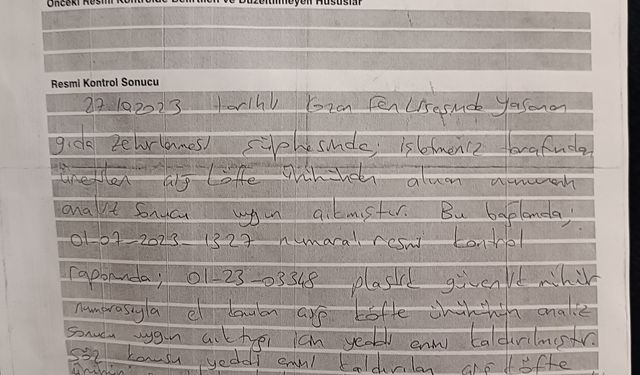 Önceki Resmi Kontrolde Belirtilen ve Düzeltilmeyen Hususlar
Resmi Kontrol Sonucu
27.10.2023 tarihli Kozan Fen Lisesinde yaşanan
gıda zehirlenmesi şüphesinde; işletmeniz tarafından
üretilen çiğ köfte ürününden alınan numunenin
analiz sonucu uygun çıkmıştır. Bu bağlamda;
01-07-2023-1327 numaralı resmi kontrol
raporunda; 01-23-03348 plastik güvenlik mühür
numarasıyla el konulan çiğ köfte ürününün analiz
sonucu uygun çıktığı için yeddi emni kaldırılmıştır.
Söz konusu yeddi emni kaldırılan çiğ köfte